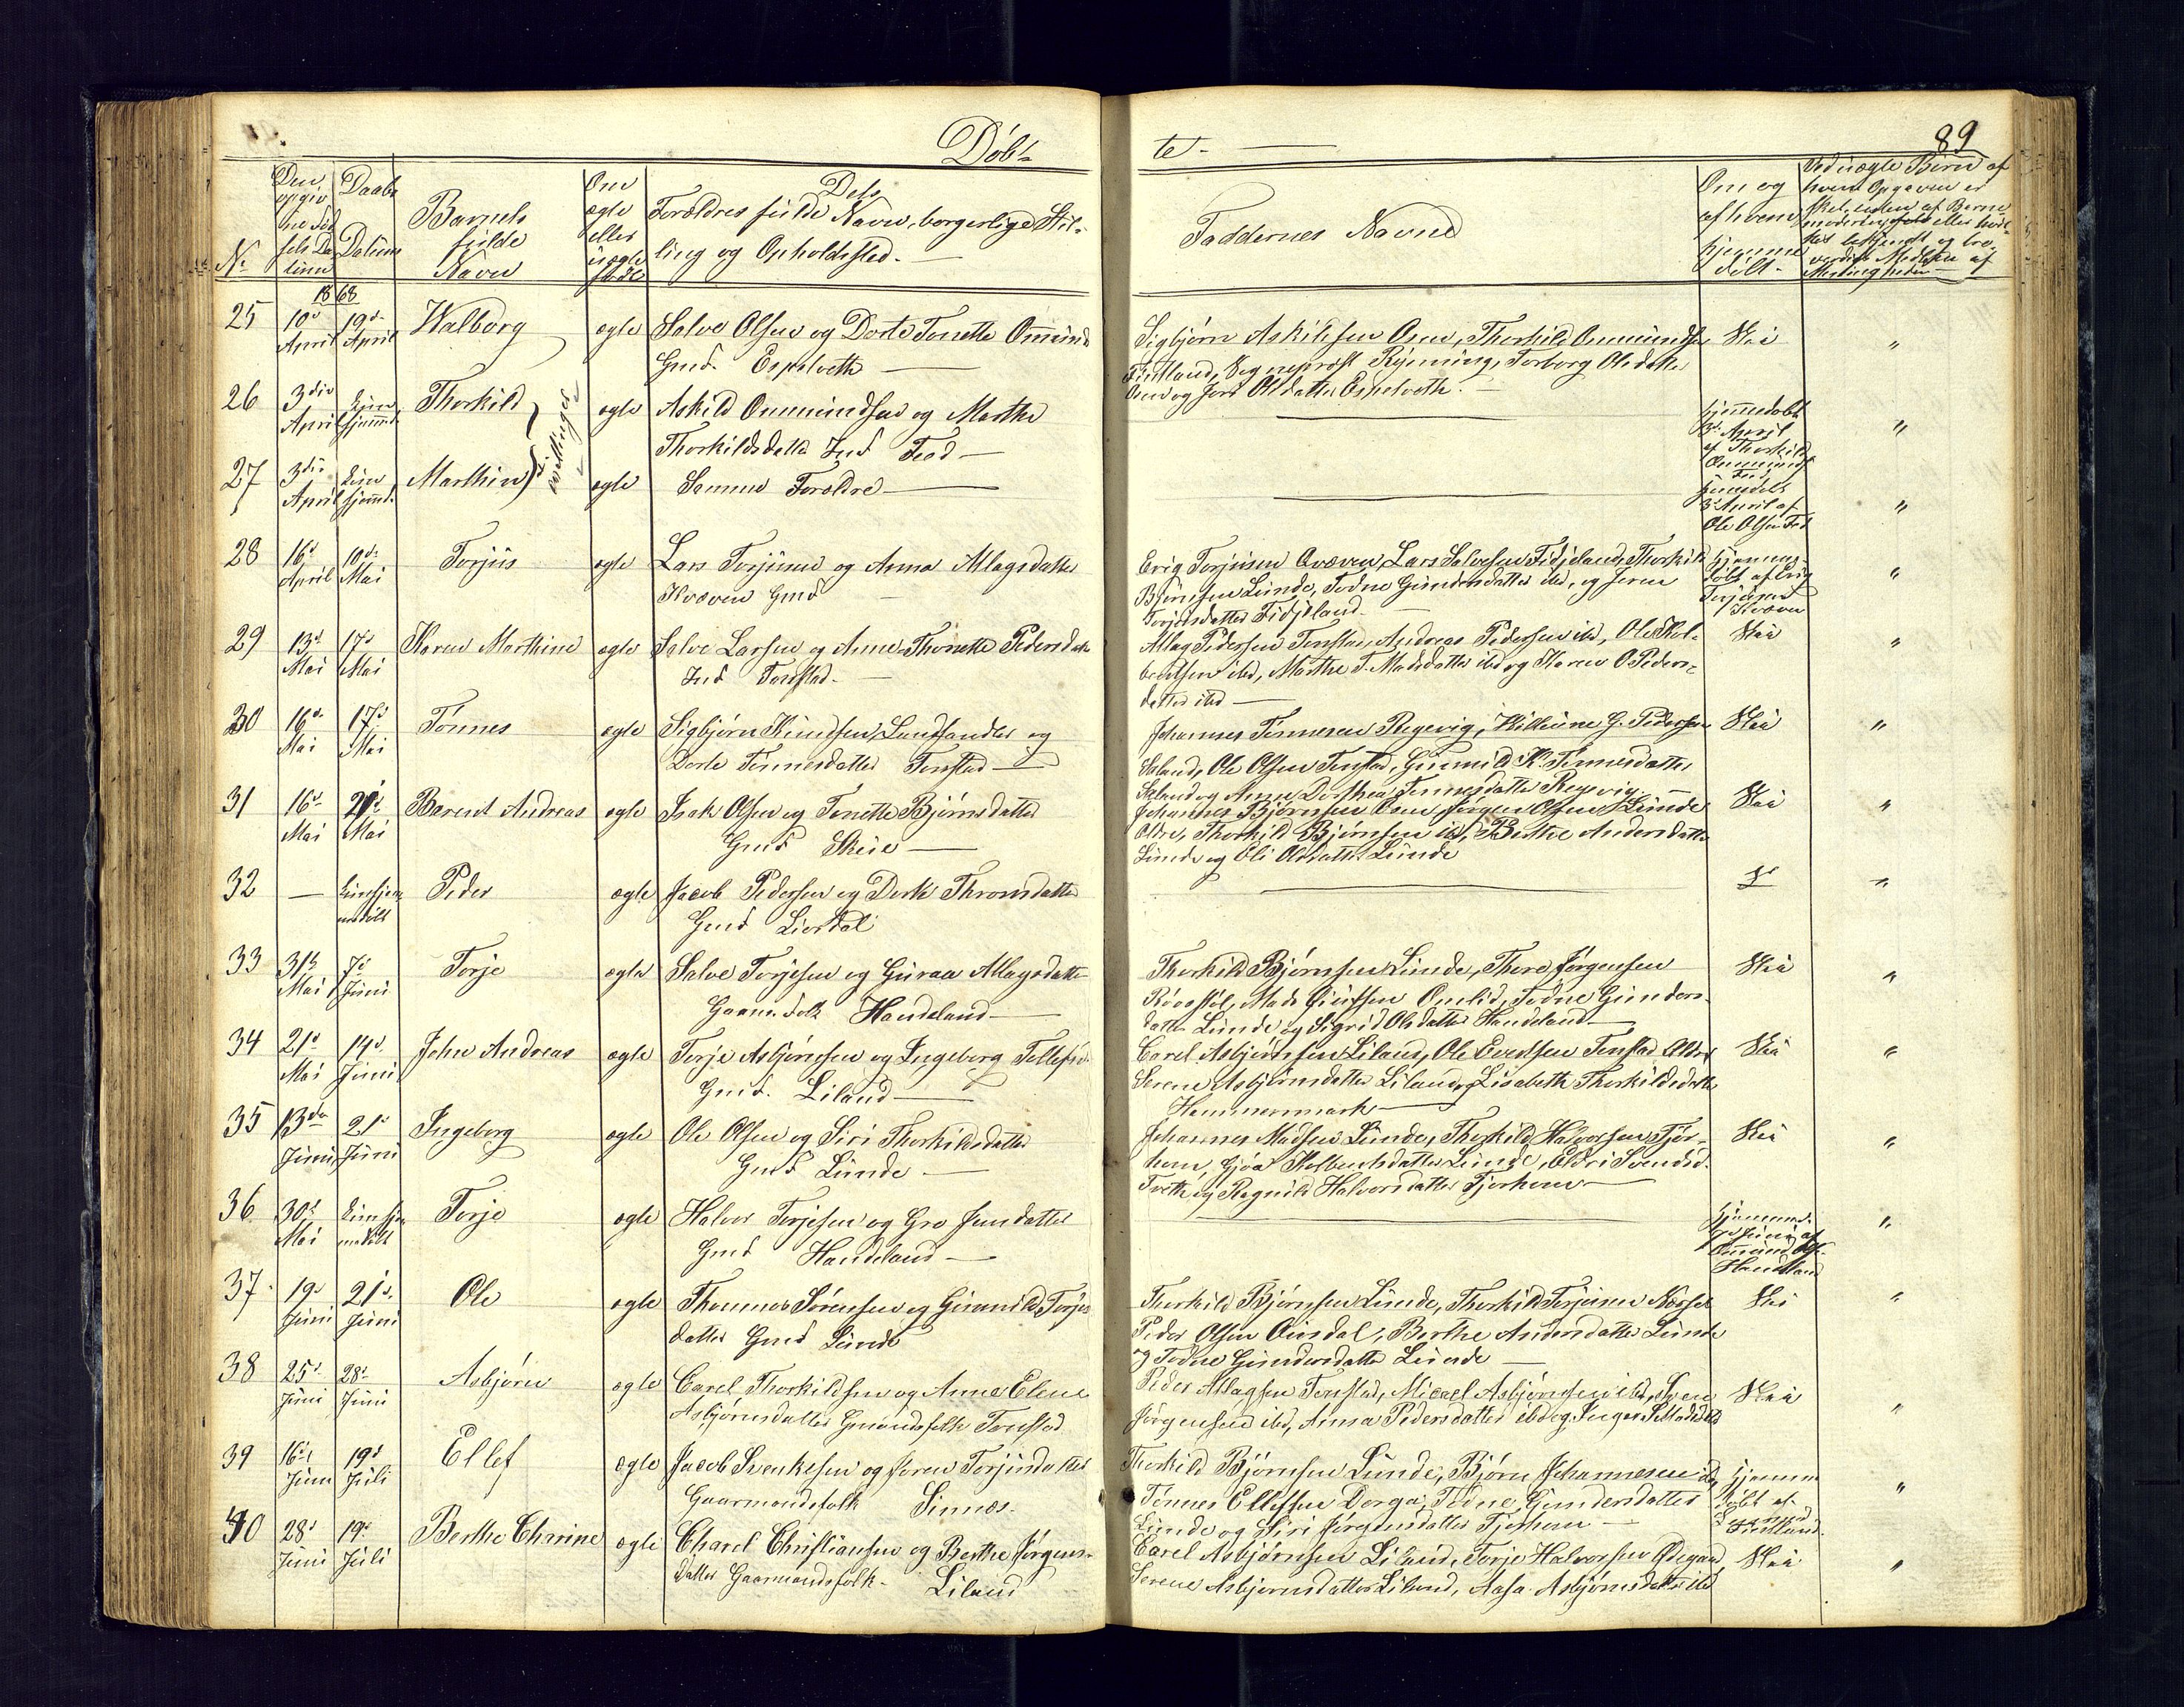 Døb-
te-
89
No
Den
opgiv
ne Fød
sels Da
tum
Daabs
Datum
Barnets
fulde
Navn
Om
ægte
eller
uægte
født
Dets
Forældres fulde Navn, borgerlige Stil-
ling og Opholdssted.
Faddernes Navne
Om og
af hvem
hjemme
døbt
Ved uægte Børn af
hvem Opgaven er
1868
25 10d April 19d April Walborg ægte Salve Olsen og Dorte Tonette Ommunds
Gmd. Espetveth
Sigbjørn Askildsen Oen, Thorkild Ommundsen Nei "
Fintland, Rynning, Torborg Olsdatter
Oen og Olsdatter Espetveth.
26 3die April Hjemmd. Thorkild ægte Askild Ommundsen og Marthe
Thorkildsdatter Ind. Fod
Tvillinger
hjemmedøbt
3d April
af Thorkild
"
27 3die April Hjemmd. Marthin ægte Samme Forældre
3d April af
Ole Olsen
"
28 16d April 10d Mai Torjus ægte Lars Torjusen og Anna Allagsdatter
Kvæven Gmd
Erig Torjusen Qvæven, Lars Salvesen Fidjeland, Thorkild
Bjørnsen Lunde, Todne Gundersdatter ibd, og Seren
Torjusdatter Fidjeland
Hjemme-
døbt af Erig
Torjusen
Kvæven
"
29 13d Mai 17d Mai Karen Marthine ægte Salve Larsen og Anne Thonette Pedersdatter
Ind Tonstad.
Allag Pedersen Tonstad, Andreas Pedersen ibd, Ole Kol-
bentsen ibd, Marthe T. Madsdatter ibd og Karen O Peders-
datter ibd
Nei "
30 16d Mai 17d Mai Tønnes ægte Sigbjørn Knudsen, Landhandler og
Dorte Tønnesdatter Tonstad
Johannes Tønnesen Regevig, G. Pedersen Nei "
Ole Olsen Tonstad, Gunnild K. Tønnesdatter
og Anne Dorthea Tønnesdatter Regevig
31 16d Mai 21d Mai Barent Andreas ægte Isak Olsen og Tonette Bjørnsdatter
Gmd Skeie
Johannes Bjørnsen Oen, Jørgen Olsen Lunde Nei "
Thorkild Bjørnsen ibd, Berthe Andersdatter
Lunde og Eli Olsdatter Lunde
32 — hjem
medøbt Peder ægte Jacob Pedersen og Dorte Thronsdatter
Gmd Liordal
"
33 31te Mai 7d Juni Torje ægte Salve Torjesen og Guraa Allagsdatter
Gaarm. folk Haudeland
Thorkild Bjørnsen Lunde, Thore Jørgensen Nei "
Mads Omlid, Todne Gunders-
datter Lunde og Sigrid Olsdatter Haudeland
34 21d Mai 14d Juni John Andreas ægte Torje Asbjørnsen og Ingeborg Tollefsd.
Gmd. Liland
Carel Asbjørnsen Liland, Ole Evertsen Tonstad Nei "
Serene Asbjørnsdatter Liland og Lisabeth Thorkildsdatter
Hammermark
35 13de Juni 21d Juni Ingeborg ægte Ole Olsen og Siri Thorkildsdatter
Gmd Lunde
Johannes Madsen Lunde, Thorkild Halvorsen Tjør- Nei "
hom, Gjøa Kolbentsdatter Lunde, Eldri Svendsd.
Tveth og Ragnild Halvorsdatter Tjorhom
36 30d Mai hjem
medøbt Torje ægte Halvor Torjesen og Gro Jensdatter
Gmd Haudeland
"
37 19d Juni 21d Juni Ole ægte Thomas Sørensen og Gunnild Torjus
datter Gmd Lunde
Thorkild Bjørnsen Lunde, Thorkild Torjusen Næsset Nei "
Peder Olsen Ousdal, Berthe Andersdatter Lunde
og Todne Gundersdatter Lunde
38 25d Juni 28d Juni Asbjørn ægte Carel Thorkildsen og Anne Elene
Asbjørnsdatter Gmandsfolk Tonstad
Peder Allagsen Tonstad, Micael Asbjørnsen ibd, Sven Nei "
Jørgensen ibd, Anna Pedersdatter ibd og Inger
39 16d Juni 19d Juli Ellef ægte Jacob Svenkesen og Joren Torjusdatter
Gaarmandsfolk Sinnes.
Thorkild Bjørnsen Lunde, Bjørn Johannesen ibd,
Tønnes Ellefsen Dorga, Todne Gundersdatter
Lunde og Siri Jørgensdatter Tjorhom
Hjemme
døbt af
"
40 28d Juni 19d Juli Berthe Charine ægte Charel Christiansen og Berthe Jørgens-
datter Gaarmandsfolk. Liland
Carel Asbjørnsen Liland, Torje Halvorsen Ødegaard Nei "
Serene Asbjørnsdatter Liland, Aasa Asbjørnsdatter ibd